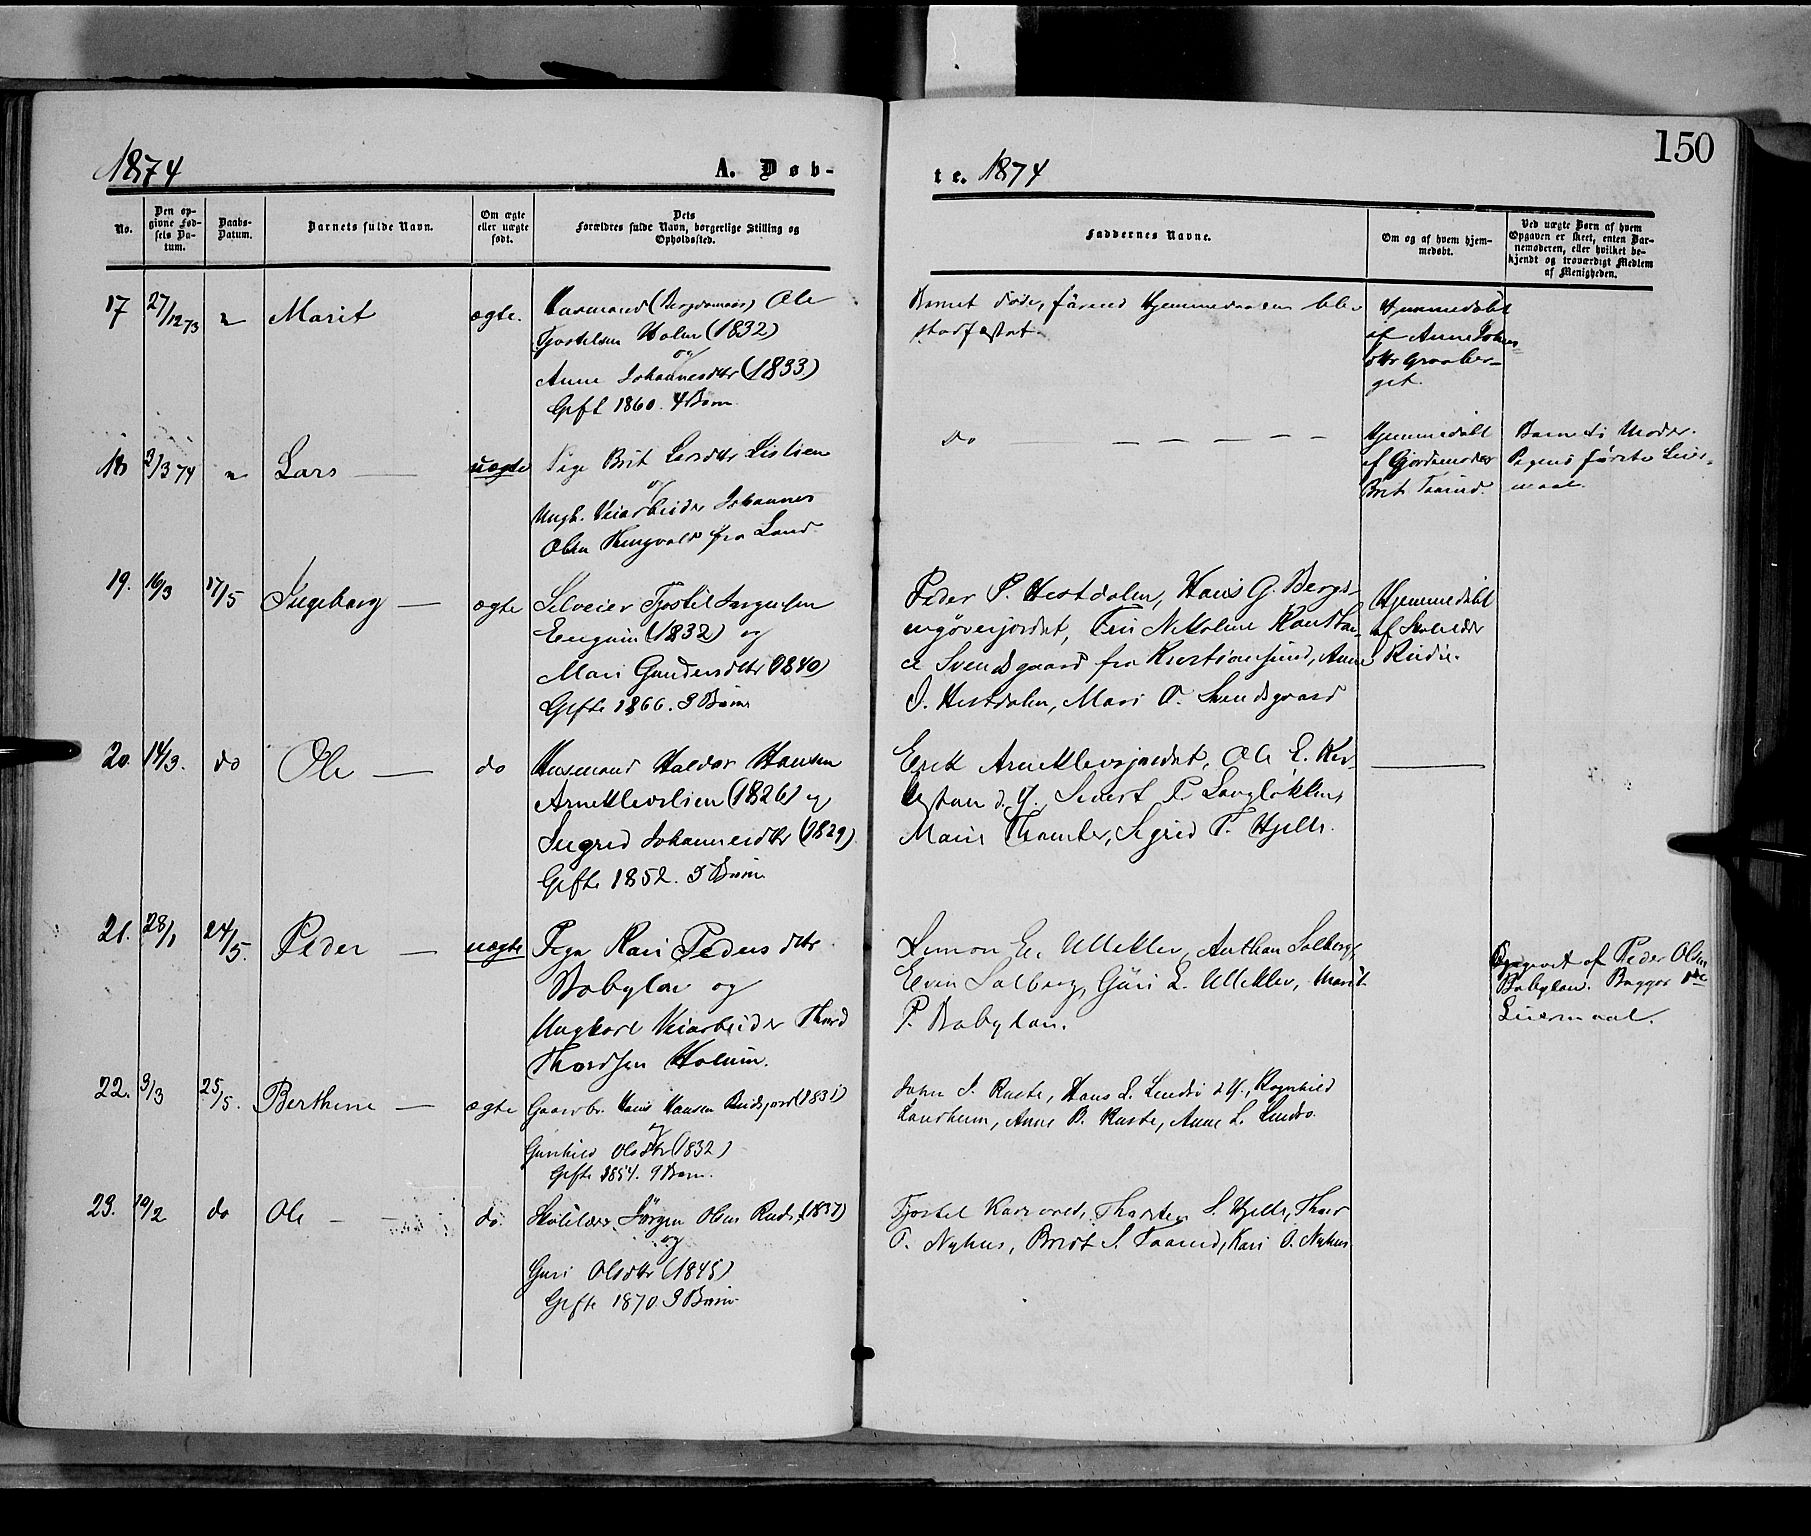 150
1874
A. Døb-
te. 1874
No.
Den op-
givne Fød-
sels Da-
tum.
Daabs-
Datum.
Barnets fulde Navn.
Om ægte
eller uægte
født.
Dets
Forældres fulde Navn, borgerlige Stilling og
Opholdssted.
Faddernes Navne.
Om og af hvem hjem-
medøbt.
Ved uægte Børn af hvem
Opgaven er skeet, enten Bar-
nemoderen, eller hvilket be-
kjendt og troværdigt Medlem
af Menigheden.
17 27/12 73 Marit ægte.
Husmand Ole
Holm (1832)
og
Anne Johannesdtr (1833)
Gift 1860. 4 Børn
Barnet døde, førend Hjemmedaaben blev
stadfæstet.
Hjemmedøbt
af Anne Johans
dtr Graaber-
get.
18 3/3 74 Lars uægte
Pige Brit Larsdtr
og
Ungk. Veiarbeider Johannes
Olsen fra Land.
do
Hjemmedøbt
af Gjordemoder
Brit
Barnets Moder.
Pigens første Leier-
maal.
19. 16/3 17/5 Ingeborg ægte
Selveier Tjostel
(1832) og
Mari Gundersdtr (1840)
Gifte 1866. 3 Børn
Peder P. Hestdalen, Hans G.
fra Kristiansund, Anne
J. Hestdalen, Mari O. Svendsgaard
Hjemmedøbt
af Skolelær
20. 14/3. do Ole do
Husmand Halvor Hansen
Arneklevlien (1826) og
Ingrid Johannesdtr (1829)
Gifte 1852. 5 Børn
Erik Arneklevsjordet, Ole E.
d. y., Sivert P.
Sigrid T. Hjelle.
21. 28/1 24/5. Peder uægte
Pige Kari Pedersdtr
Babylon og
Ungkarl Veiarbeider Thord
Thordsen Holum.
Simon E. Ulleklev, Solberg,
Even Solberg, Guri L. Ulleklev, Marit
P. Babylon.
Opgivet af Peder Olsen
Babylon. Begges 1ste
Leiermaal.
22. 9/3 25/5. Berthine ægte
Gaardbr. Hans Hansen (1831)
og
Gunhild Olsdtr (1832)
Gifte 1854. 9 Børn.
John J. Ruste, Hans L. d. y., Ragnhild
Anne B. Ruste, Anne L.
23. 19/2 do Ole do.
Skolelær. Jørgen Olsen (1837)
og
Guri Olsdtr (1845)
Gifte 1870. 3 Børn
Tjostel Thorsten S. Hjelle, Thor
T. Nyhus, Brit S. Kari O. Nyhus